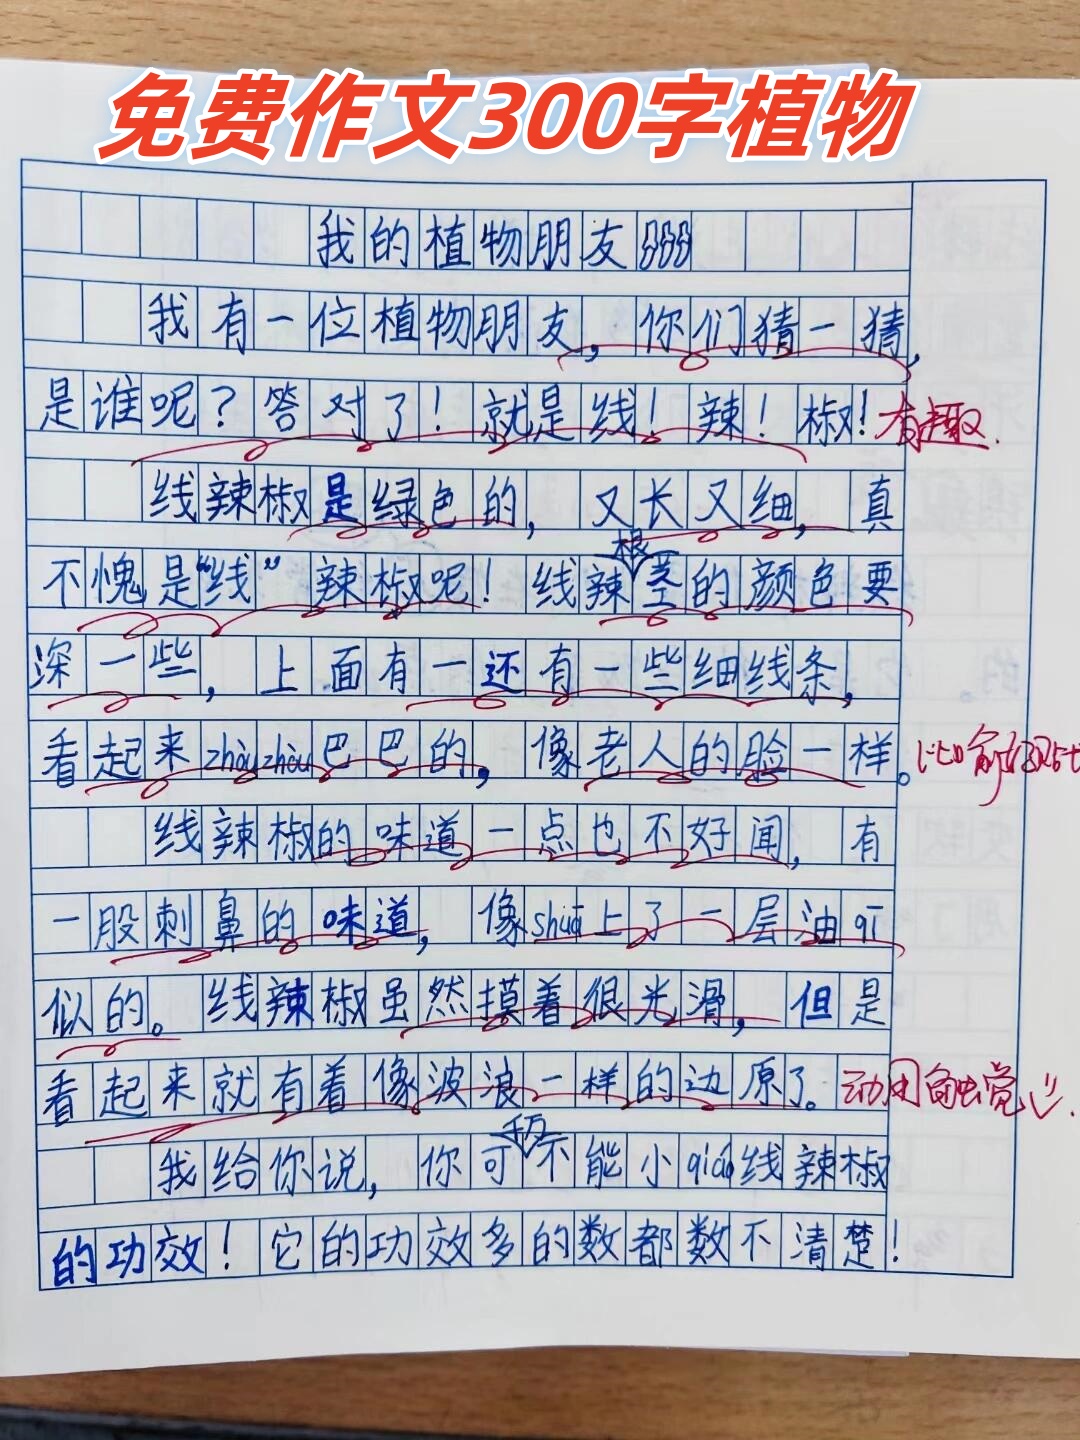 免费作文300字植物
我的植物朋友
我有一位植物朋友，你们猜一猜，
是谁呢？答对了！就是线！辣！椒！有趣。
线辣椒是绿色的，又长又细，真
不愧是“线”辣椒呢！线辣根茎的颜色要
深一些，上面有一还有一些细线条，
看起来zhòuzhòu巴巴的，像老人的脸一样。比喻
线辣椒的味道一点也不好闻，有
一股刺鼻的味道，像shuā上了一层油qī
似的。线辣椒虽然摸着很光滑，但是
看起来就有着像波浪一样的边原了。动用触觉
我给你说，你可千万不能小qiáo线辣椒
的功效！它的功效多的数都数不清楚！